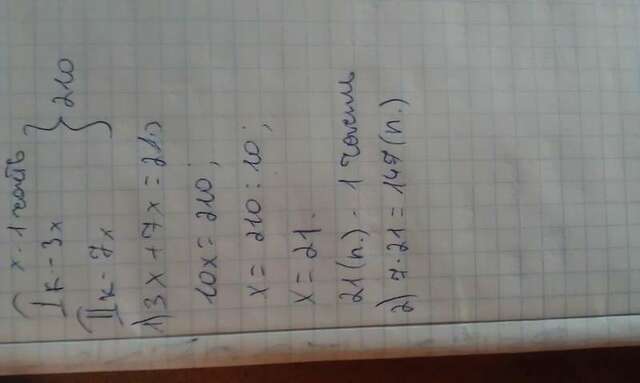 x - 1 часть
I к - 3x } 210
II к - 7x
1) 3x + 7x = 210
10x = 210;
x = 210 : 10;
x = 21.
21 (п.) - 1 часть
2) 7 · 21 = 147 (п.)